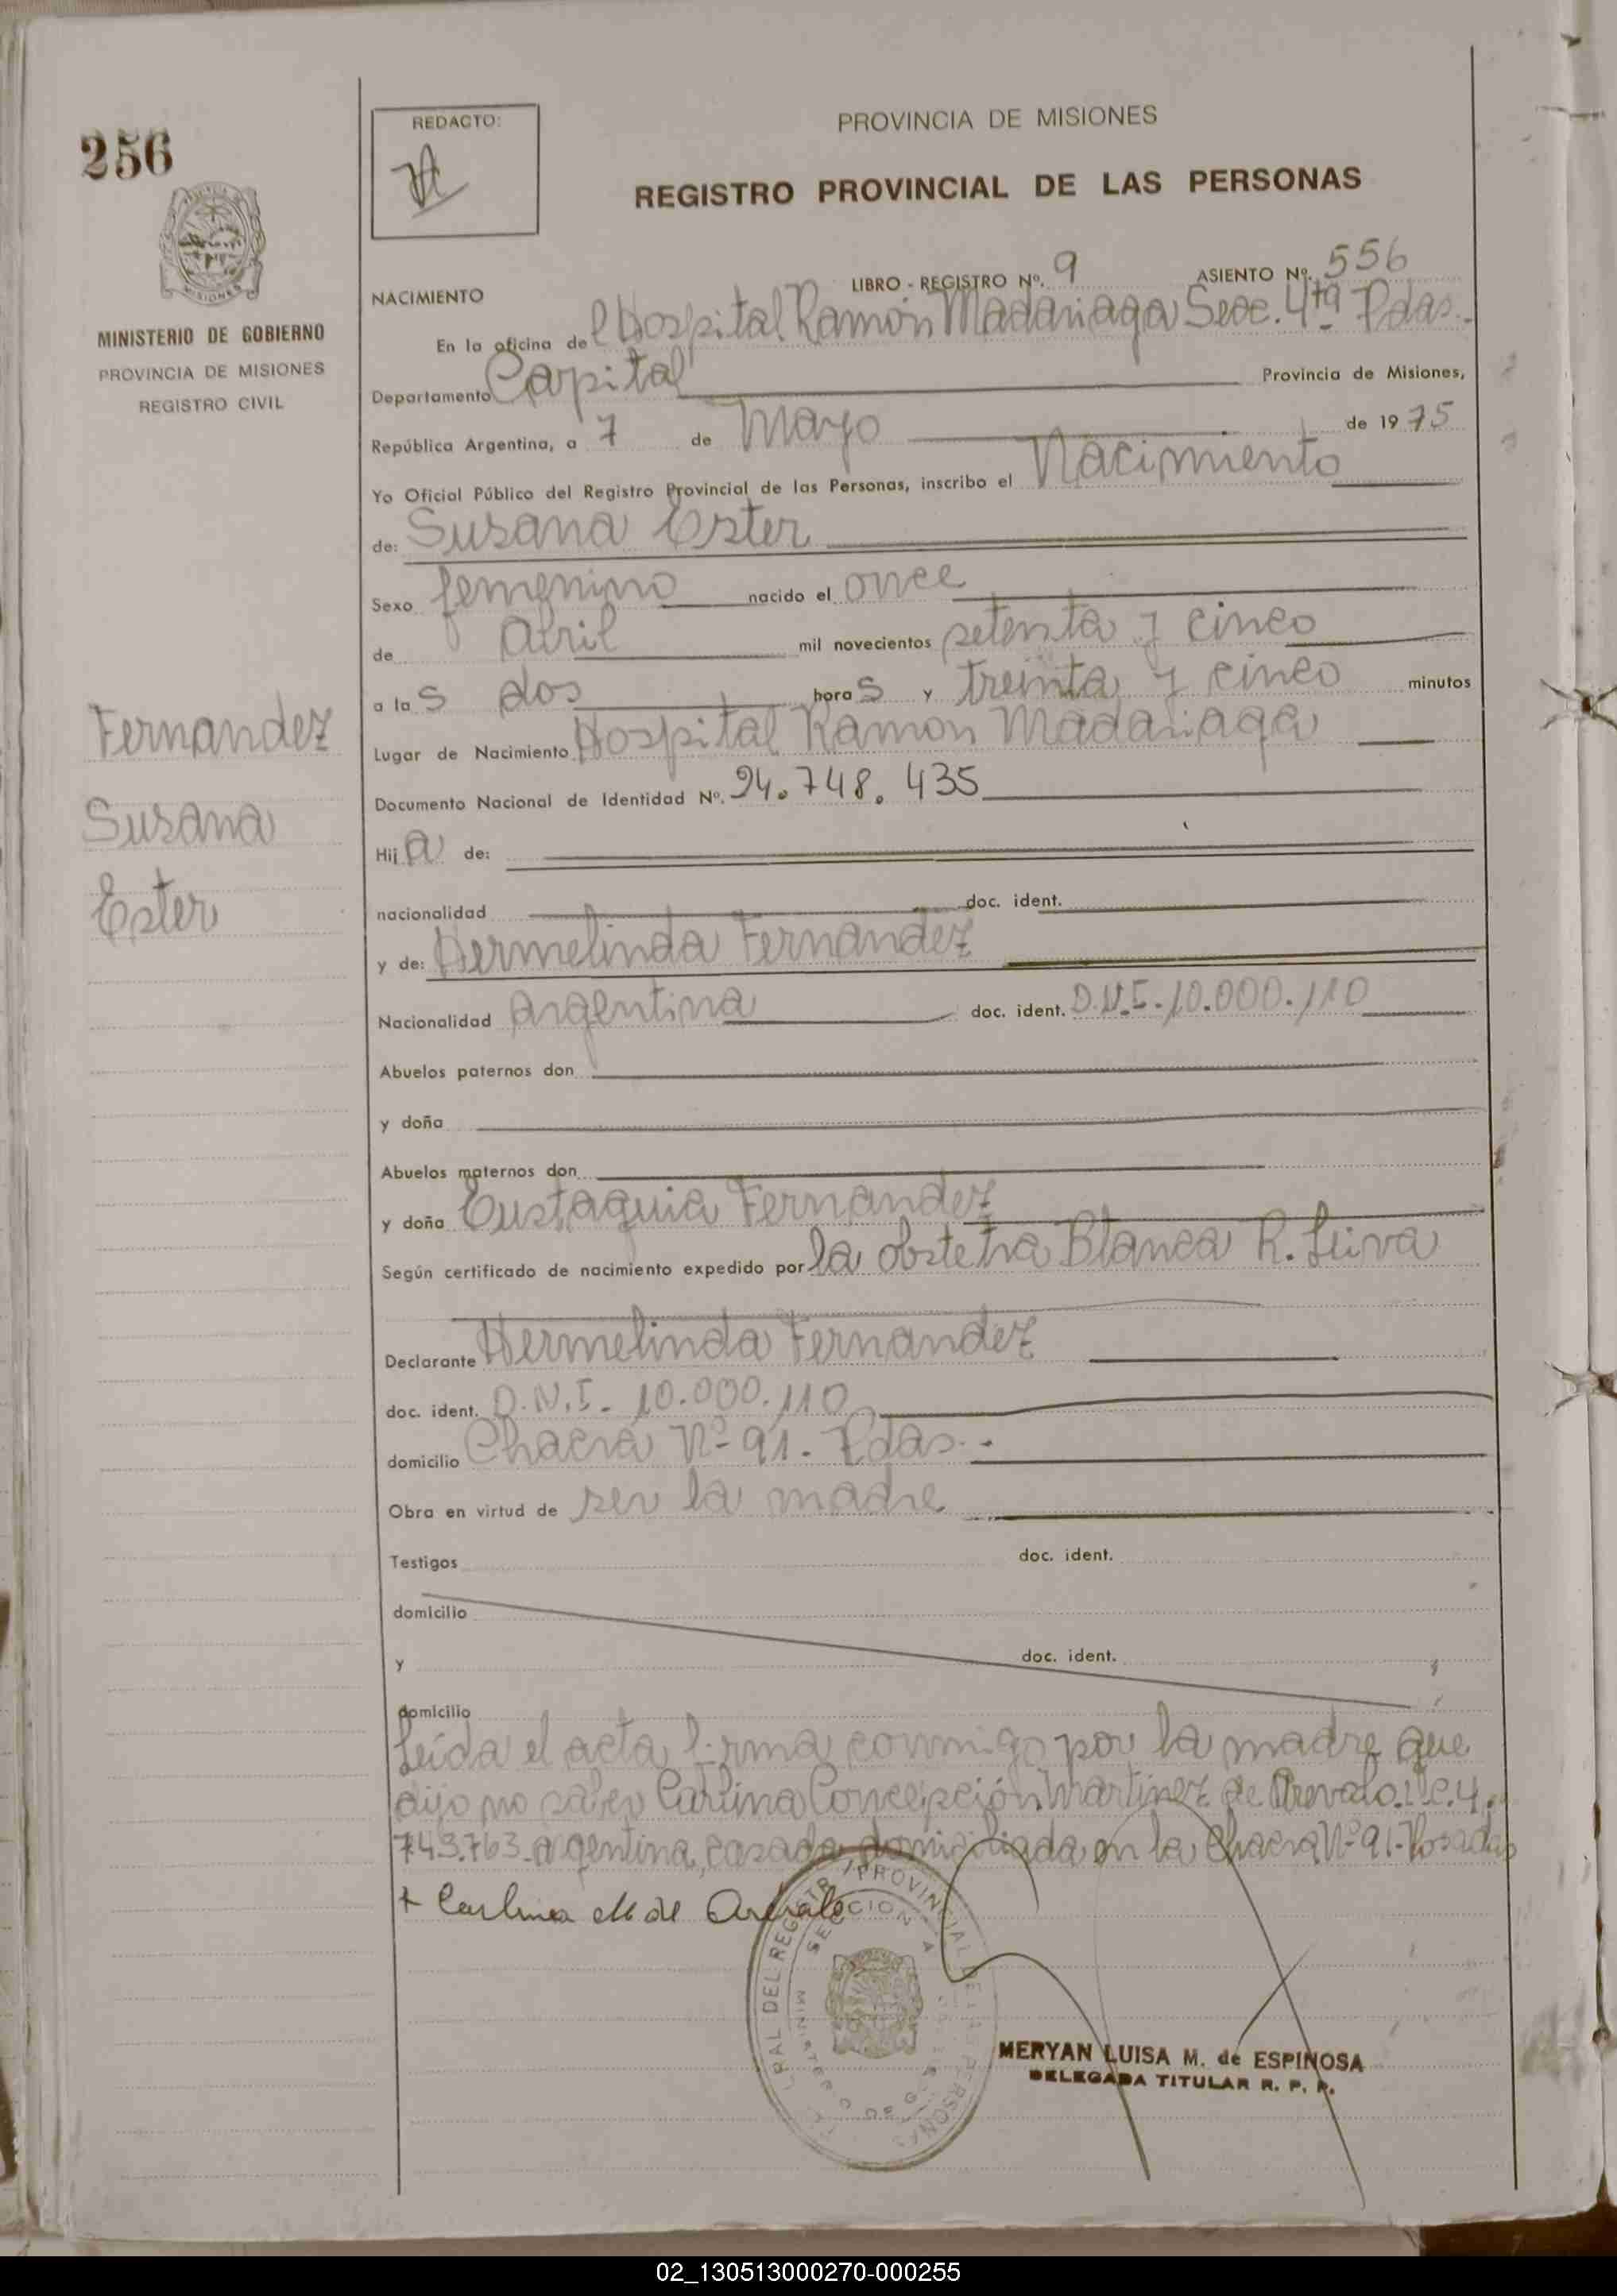 256
REDACTO:
PROVINCIA DE MISIONES
REGISTRO PROVINCIAL DE LAS PERSONAS
MINISTERIO DE GOBIERNO
PROVINCIA DE MISIONES
REGISTRO CIVIL
Fernandez
Susana
Ester
LIBRO - REGISTRO Nº. 9 ASIENTO Nº. 556
NACIMIENTO
En la oficina de l Hospital Ramón Madariaga Secc. 4ta Pdas.
Departamento Capital Provincia de Misiones,
República Argentina, a 7 de Mayo de 1975
Yo Oficial Público del Registro Provincial de las Personas, inscribo el Nacimiento
de: Susana Ester
Sexo femenino nacido el once
de Abril mil novecientos setenta y cinco
a las dos horas y treinta y cinco minutos
Lugar de Nacimiento Hospital Ramon Madariaga
Documento Nacional de Identidad Nº. 24.748.435
Hija de:
nacionalidad doc. ident.
y de: Hermelinda Fernandez
Nacionalidad argentina doc. ident. D.N.I-10.000.110
Abuelos paternos don
y doña
Abuelos maternos don
y doña Eustaquia Fernandez
Según certificado de nacimiento expedido por la obstetra Blanca R. Leiva
Declarante Hermelinda Fernandez
doc. ident. D.N.I- 10.000.110
domicilio Chacra Nº 91. Pdas.-
Obra en virtud de ser la madre
Testigos doc. ident.
domicilio
y doc. ident.
domicilio
Leída el acta firma conmigo por la madre que
dijo no saber Carlina Concepción Martinez de Arevalo. L.C. 4.
743.763 argentina, casada domiciliada en la Chacra Nº 91-Posadas
+ Carlina M de Arevalo
MINISTERIO
SECCION
MERYAN LUISA M. de ESPINOSA
DELEGADA TITULAR R. P. P.
02_130513000270-000255